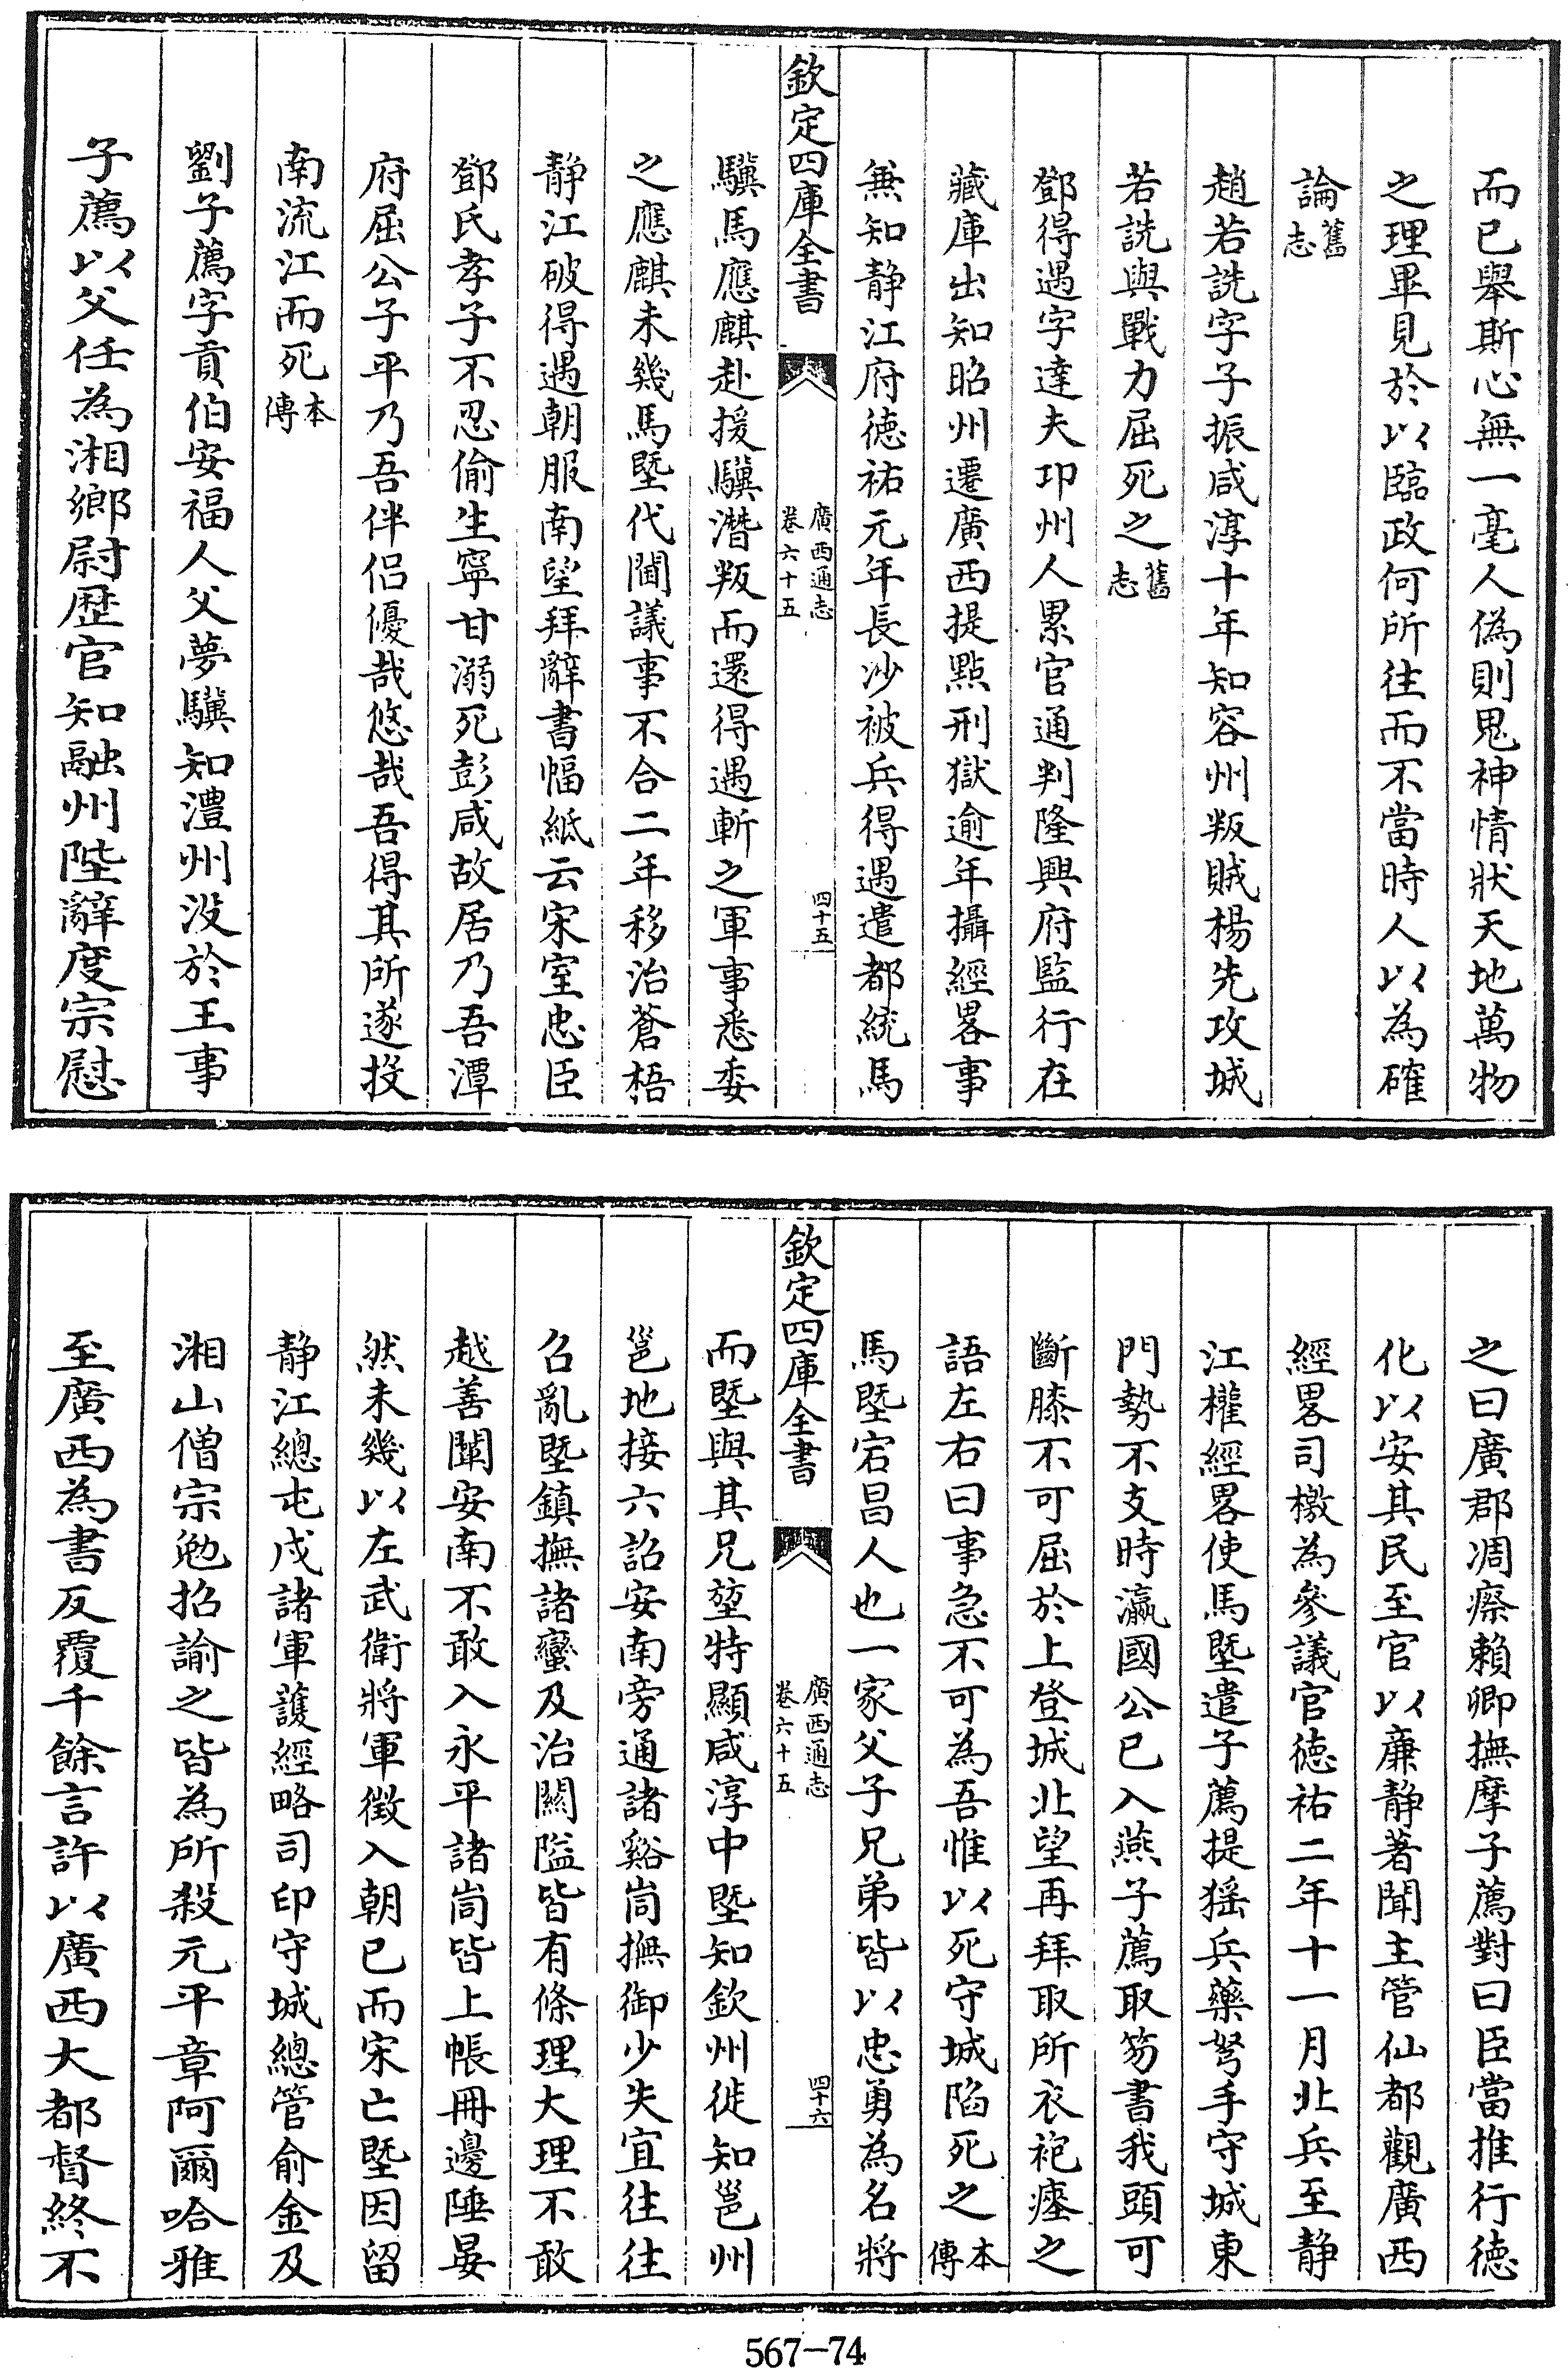 而已舉斯心無一毫人偽則鬼神情狀天地萬物
之理畢見於以臨政何所往而不當時人以為確
論舊志
趙若詵字子振咸淳十年知容州叛賊楊先攻城
若詵與戰力屈死之舊志
鄧得遇字達夫卭州人累官通判隆興府監行在
藏庫出知昭州遷廣西提點刑獄逾年攝經畧事
兼知静江府徳祐元年長沙被兵得遇遣都統馬
欽定四庫全書
廣西通志
卷六十五
四十五
驥馬應麒赴援驥潛叛而還得遇斬之軍事悉委
之應麒未幾馬塈代閫議事不合二年移治蒼梧
静江破得遇朝服南望拜辭書幅紙云宋室忠臣
鄧氏孝子不忍偷生寧甘溺死彭咸故居乃吾潭
府屈公子平乃吾伴侣優哉悠哉吾得其所遂投
南流江而死本傳
劉子薦字貢伯安福人父夢驥知澧州沒於王事
子薦以父任為湘鄉尉歴官知融州陛辭度宗慰
之曰廣郡凋瘵賴卿撫摩子薦對曰臣當推行徳
化以安其民至官以亷静著聞主管仙都觀廣西
經畧司檄為參議官徳祐二年十一月北兵至静
江權經畧使馬塈遣子薦提猺兵藥弩手守城東
門勢不支時瀛國公已入燕子薦取笏書我頭可
斷膝不可屈於上登城北望再拜取所衣袍瘞之
語左右曰事急不可為吾惟以死守城陷死之本傳
馬塈宕昌人也一家父子兄弟皆以忠勇為名將
欽定四庫全書
廣西通志
卷六十五
四十六
而塈與其兄堃特顯咸淳中塈知欽州徙知邕州
邕地接六詔安南旁通諸谿峝撫御少失宜往往
召亂塈鎮撫諸蠻及治關隘皆有條理大理不敢
越善闡安南不敢入永平諸峝皆上帳冊邊陲晏
然未幾以左武衛將軍徴入朝已而宋亡塈因留
静江總屯戍諸軍護經略司印守城總管俞金及
湘山僧宗勉招諭之皆為所殺元平章阿爾哈雅
至廣西為書反覆千餘言許以廣西大都督終不
567—74